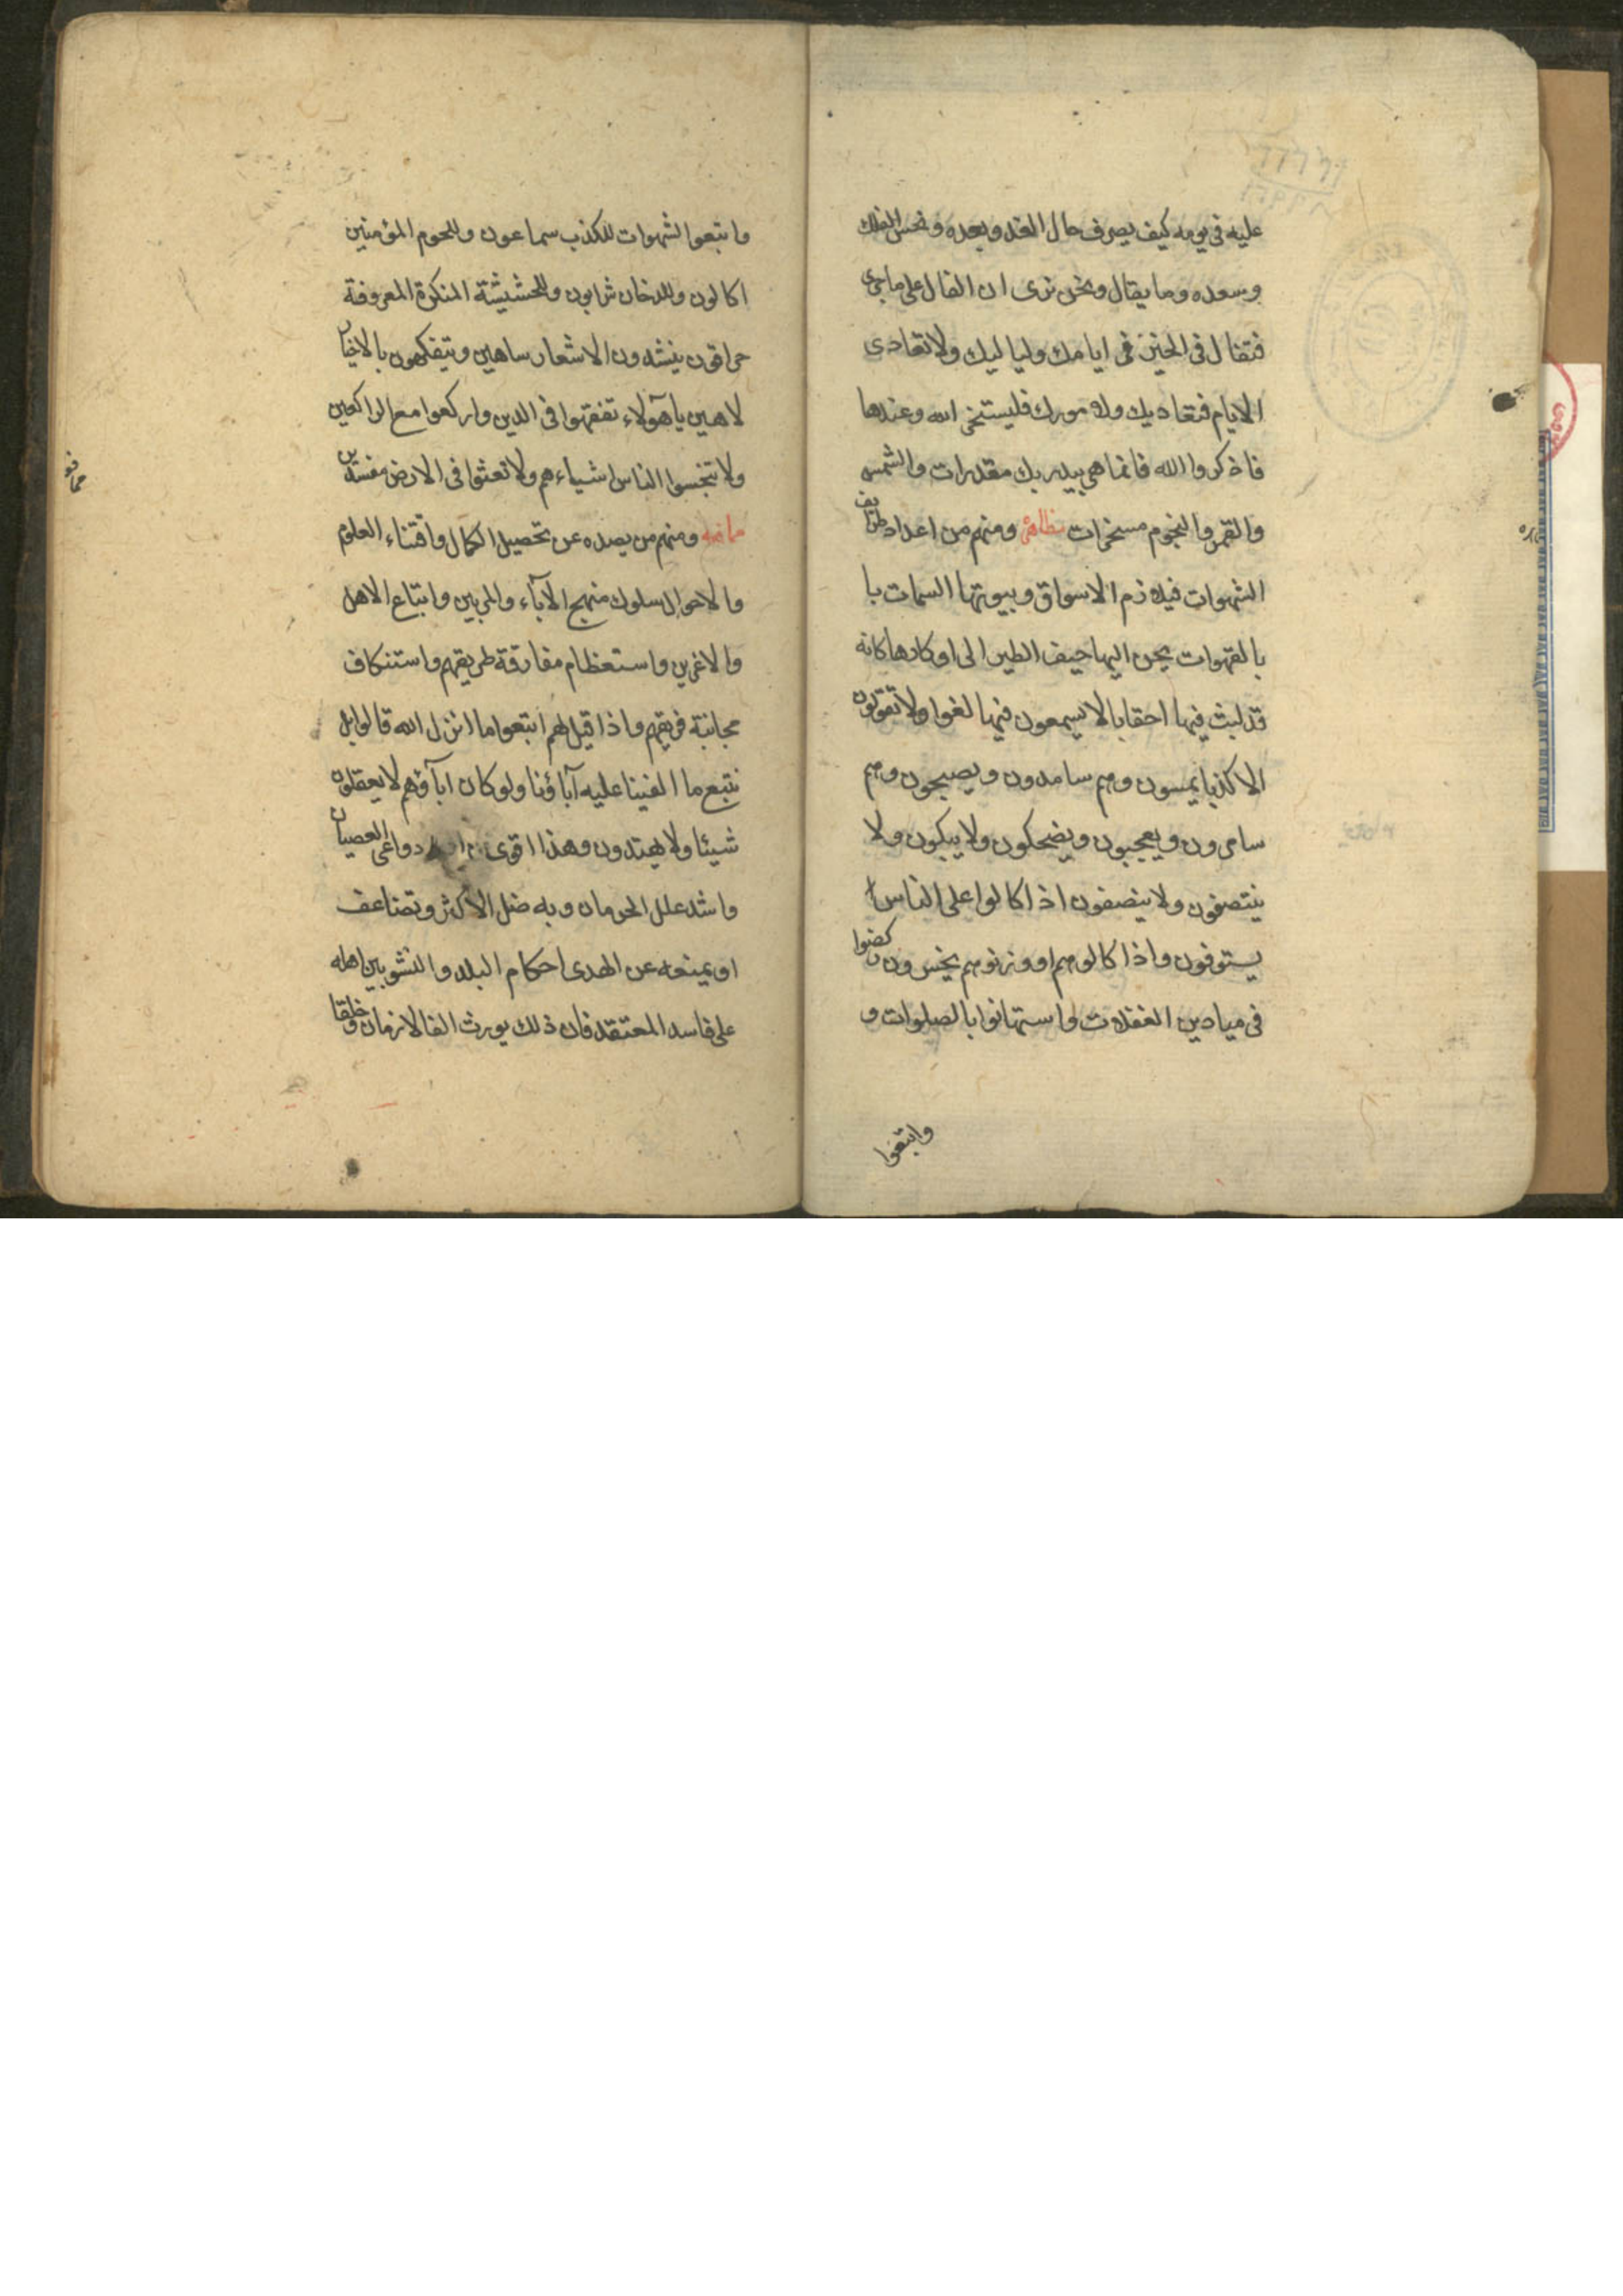 عليه فى يومه كيف يصرف حال الغد وبعده ونحس الفلك
وسعده وما يقال ونحن نرى ان الفال على ماجرى
فتفال فى الحين فى ايامك ولياليك ولا تعادى
الايام فتعاديك وله مورك فليستخر الله وعندها
فاذكروا الله فانما هى بيد ربك مقدرات والشمس
والقمر والنجوم مسخرات ومنهم من اعداد طرايف
الشهوات فيه ذم الاسواق وبيوتها السمات با
بالقهوات يحن اليها حيف الطير الى اوكارها كانه
قد لبث فيها احقابا لا يسمعون فيها لغوا ولا تقولون
الا كذبا يمسون وهم سامدون ويصبحون وهم
سامرون ويعجبون ويضحكون ولا يبكون ولا
ينتصفون ولا ينصفون اذا كالوا على الناس
يستوفون واذا كالوهم او وزنوهم يخسرون ركضوا
فى ميادين الغفلات واستهانوا بالصلوات و
واتبعوا
واتبعوا الشهوات للكذب سماعون وللحوم المؤمنين
اكالون وللدخان شرابون وللحشيشة المنكرة المعروفة
حراقون ينشدون الاشعار ساهين ويتفكهون بالاخبار
لاهين يا هؤلاء تفقهوا فى الدين واركعوا مع الراكعين
ولا تبخسوا الناس اشياءهم ولا تعثوا فى الارض مفسدين
ومنهم من يصده عن تحصيل الكمال واقتناء العلوم
والاحوال سلوك منهج الآباء والمربين واتباع الاهل
والاغرين واستعظام مفارقة طريقهم واستنكاف
مجانبة فريقهم واذا قيل لهم اتبعوا ما انزل الله قالوا بل
نتبع ما الفينا عليه آباؤنا ولو كان اباؤهم لا يعقلون
شيئا ولا يهتدون وهذا اقوى دواعى العصيان
واشد علل الحرمان وبه ضل الاكثر وتضاعف
او يمنعه عن الهدى احكام البلد والنشو بين اهله
على فاسد المعتقد فان ذلك يورث الفا لازمان وخلقا